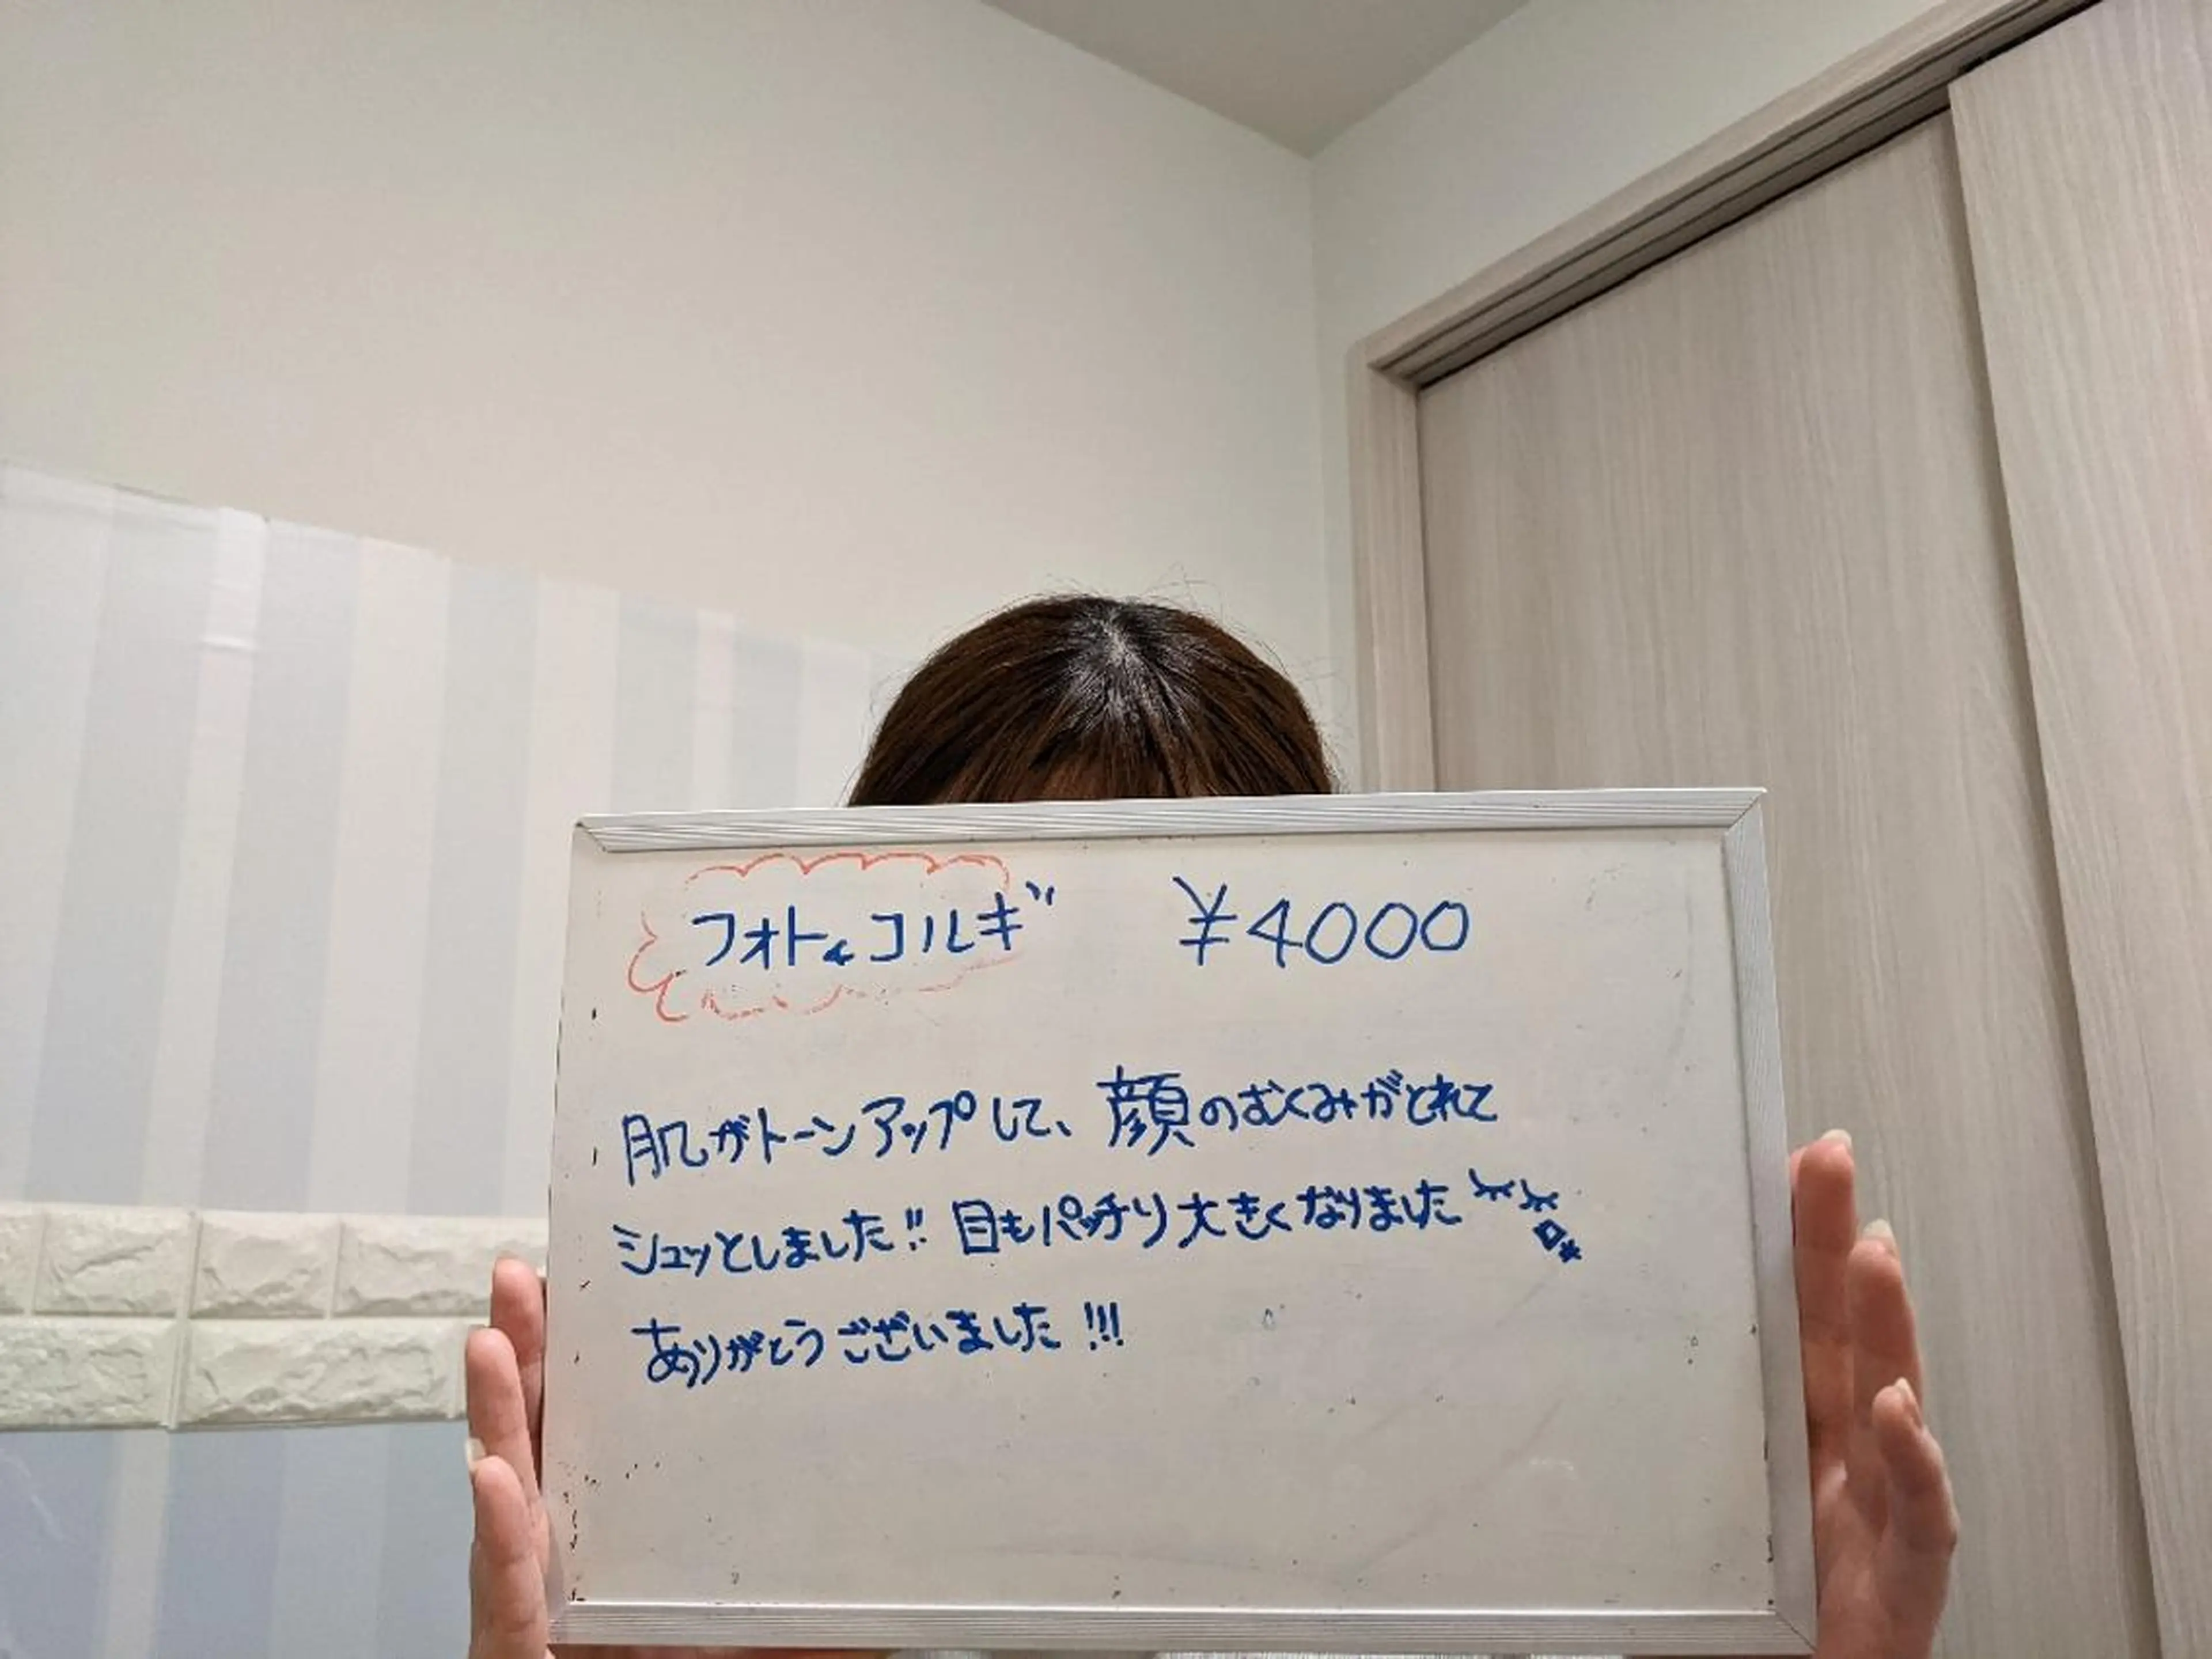 フォト&コルギ ¥4000
肌がトーンアップして、顔のむくみがとれて
シュッとしました!! 目もパッチリ大きくなりました
ありがとうございました!!!